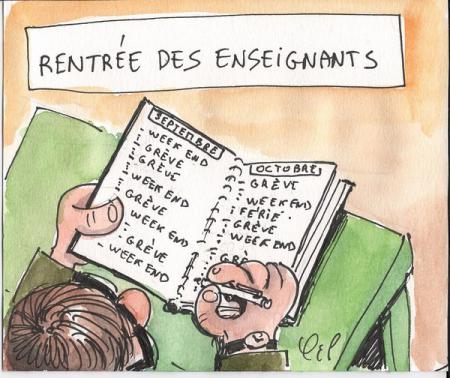 RENTRÉE DES ENSEIGNANTS
SEPTEMBRE
- WEEK END
- GRÈVE
- GRÈVE
- WEEK END
- GRÈVE
- WEEK END
- GRÈVE
- WEEK END
OCTOBRE
- GRÈVE
- WEEK END
- FÉRIÉ.
- GRÈVE
- WEEK END